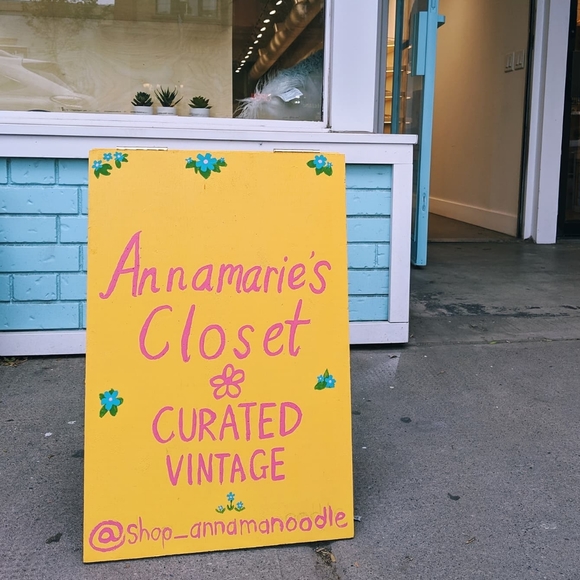 Annamarie's
Closet
CURATED
VINTAGE
@shop_annamanoodle